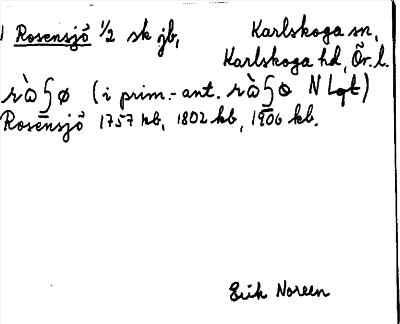 1 Rosensjö 1/2 sk jb, Karlskoga sn,
Karlskoga hd, Ör. l.
(i prim.-ant.
Rosensjö 1757 kb, 1802 kb, 1906 kb.
Erik Noreen